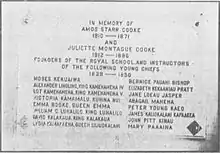 IN MEMORY OF
AMOS STARR COOKE
1810 – 1871
AND
JULIETTE MONTAGUE COOKE
1812 – 1896
FOUNDERS OF THE ROYAL SCHOOL AND INSTRUCTORS
OF THE FOLLOWING YOUNG CHIEFS
1839 – 1850
MOSES KEKUAIWA
ALEXANDER LIHOLIHO, KING KAMEHAMEHA IV
LOT KAMEHAMEHA, KING KAMEHAMEHA V
VICTORIA KAMAMALU, KUHINA NUI
EMMA ROOKE, QUEEN EMMA
WILLIAM C. LUNALILO, KING LUNALILO
DAVID KALAKAUA, KING KALAKAUA
LYDIA KAMAKAEHA, QUEEN LILIUOKALANI
BERNICE PAUAHI BISHOP
ELIZABETH KEKAANIAU PRATT
JANE LOEAU JASPER
ABAGAIL MAHEHA
PETER YOUNG KAEO
JAMES KALIOKALANI
JOHN PITT KINAU
MARY PAAAINA